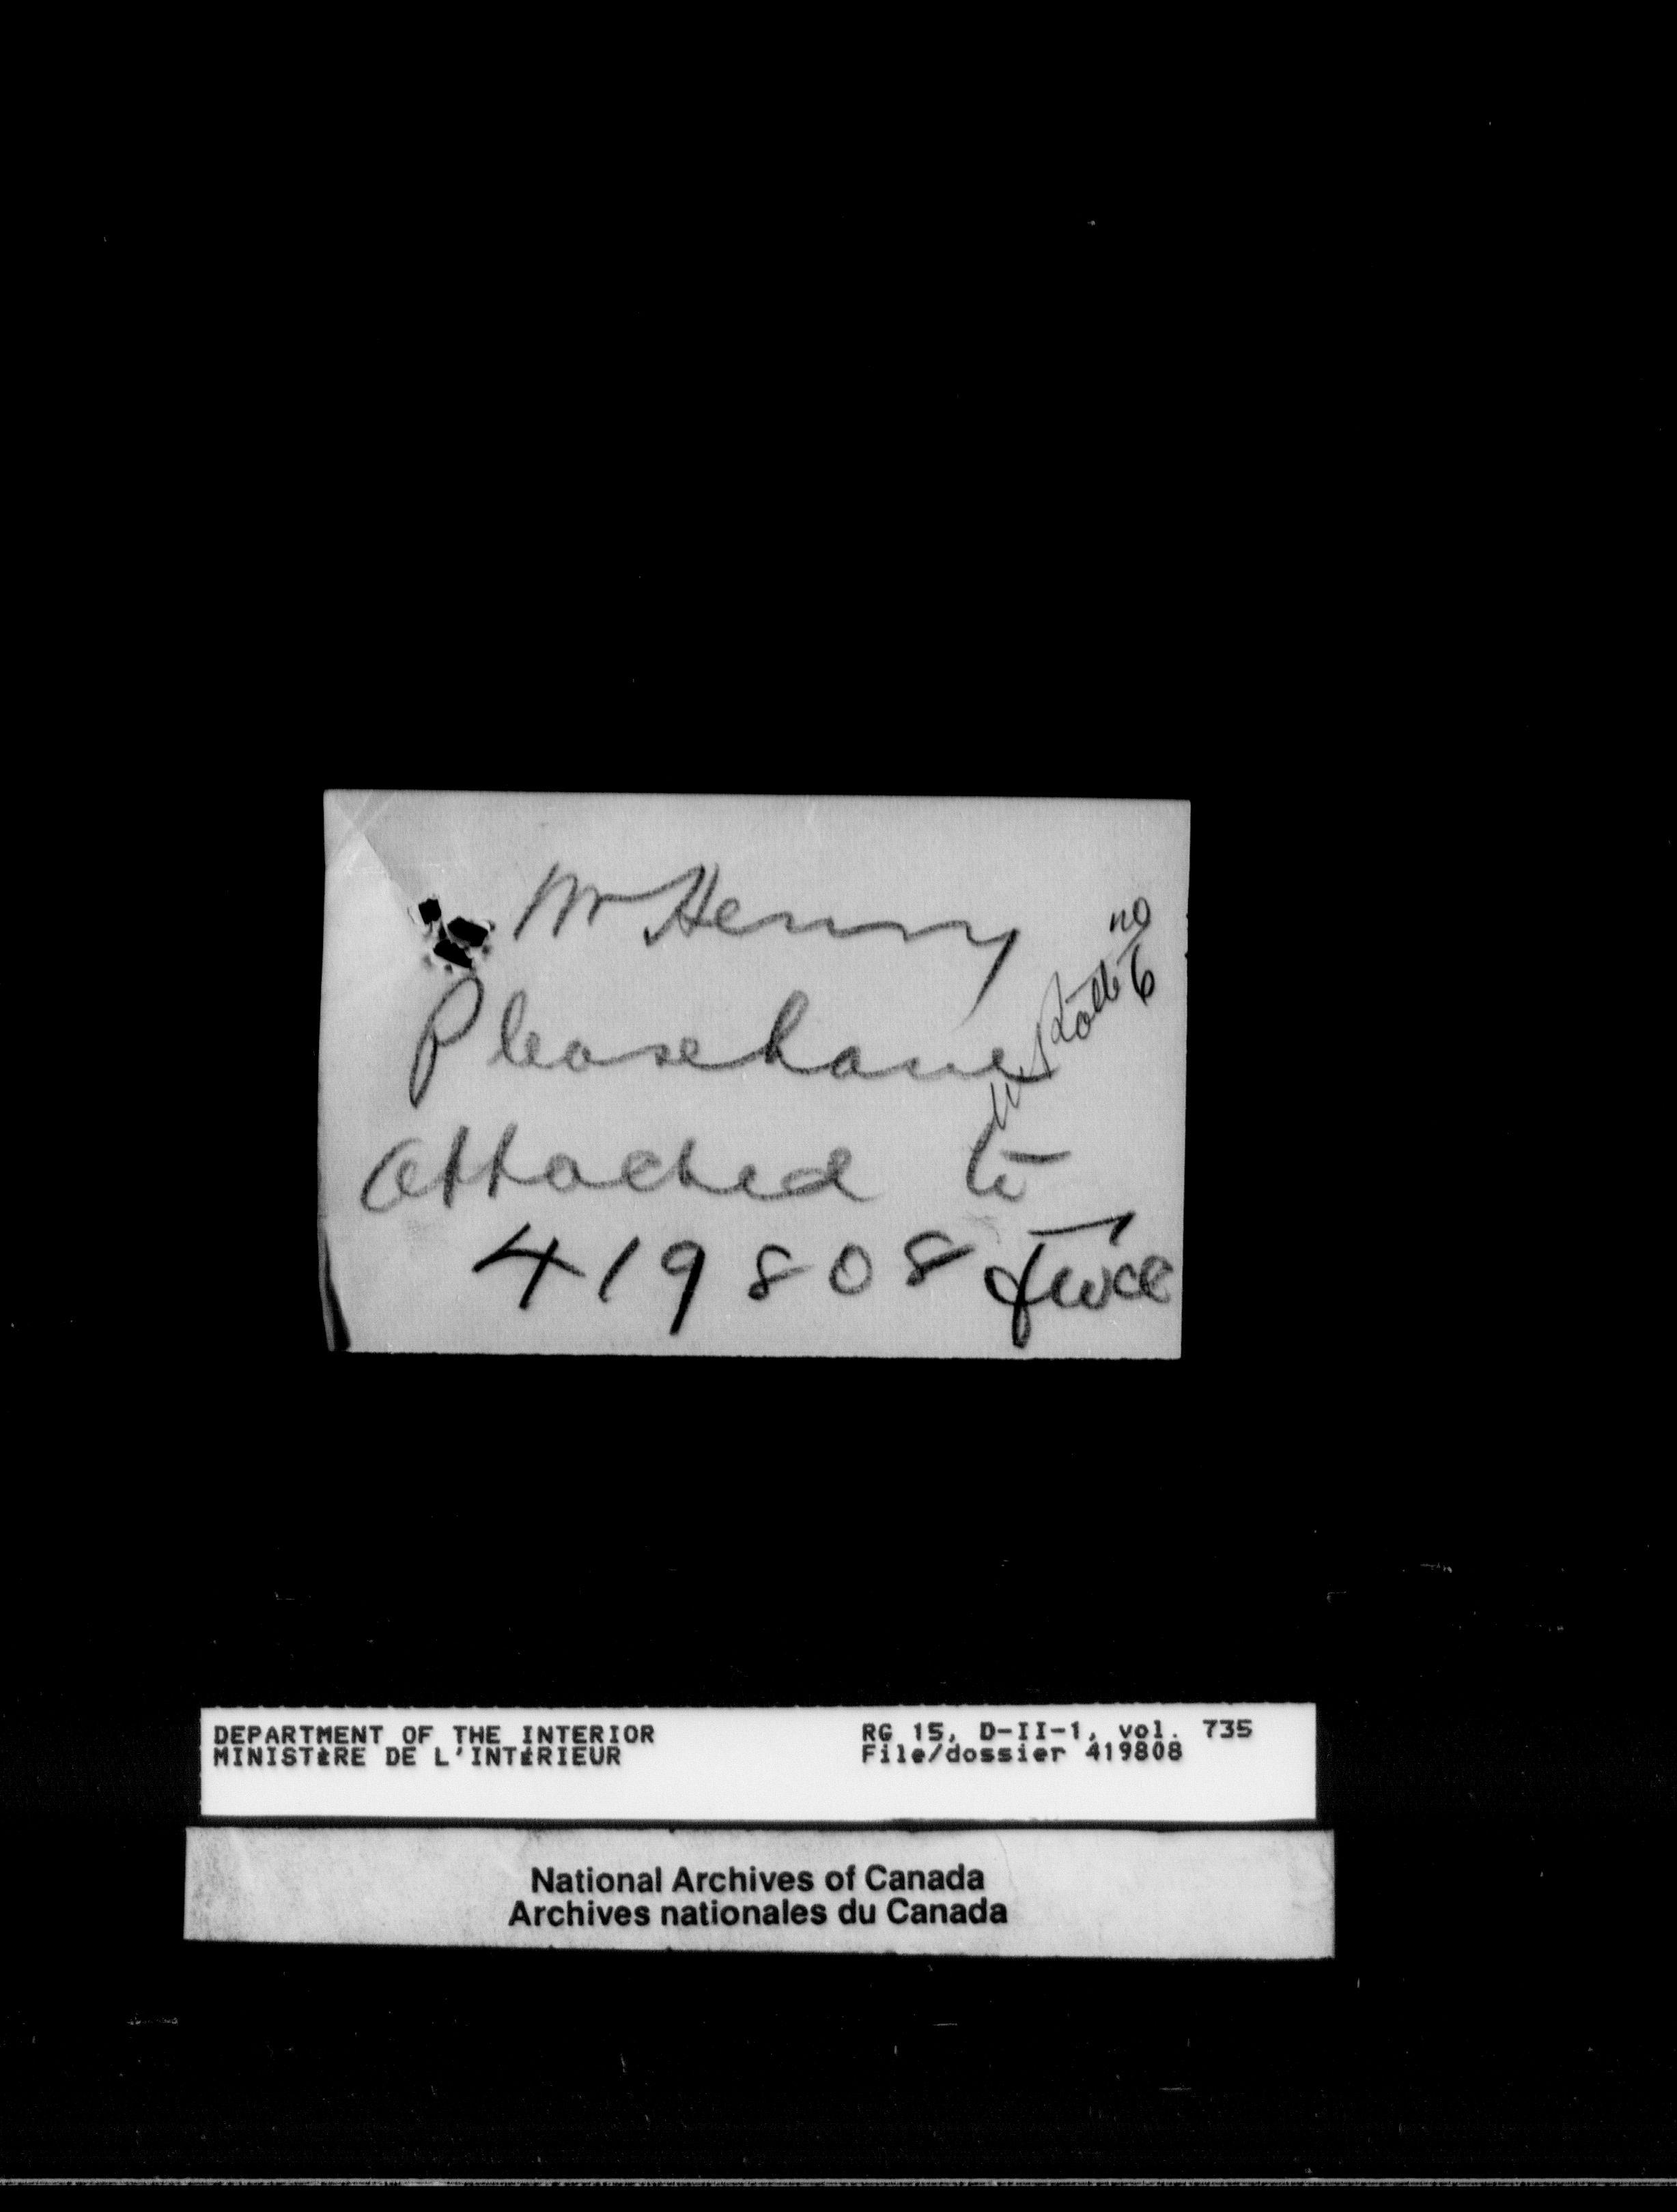 Mr Henry
Please have
attached to
419808
no
6
DEPARTMENT OF THE INTERIOR
MINISTÈRE DE L'INTÉRIEUR
RG 15, D-II-1, vol. 735
File/dossier 419808
National Archives of Canada
Archives nationales du Canada